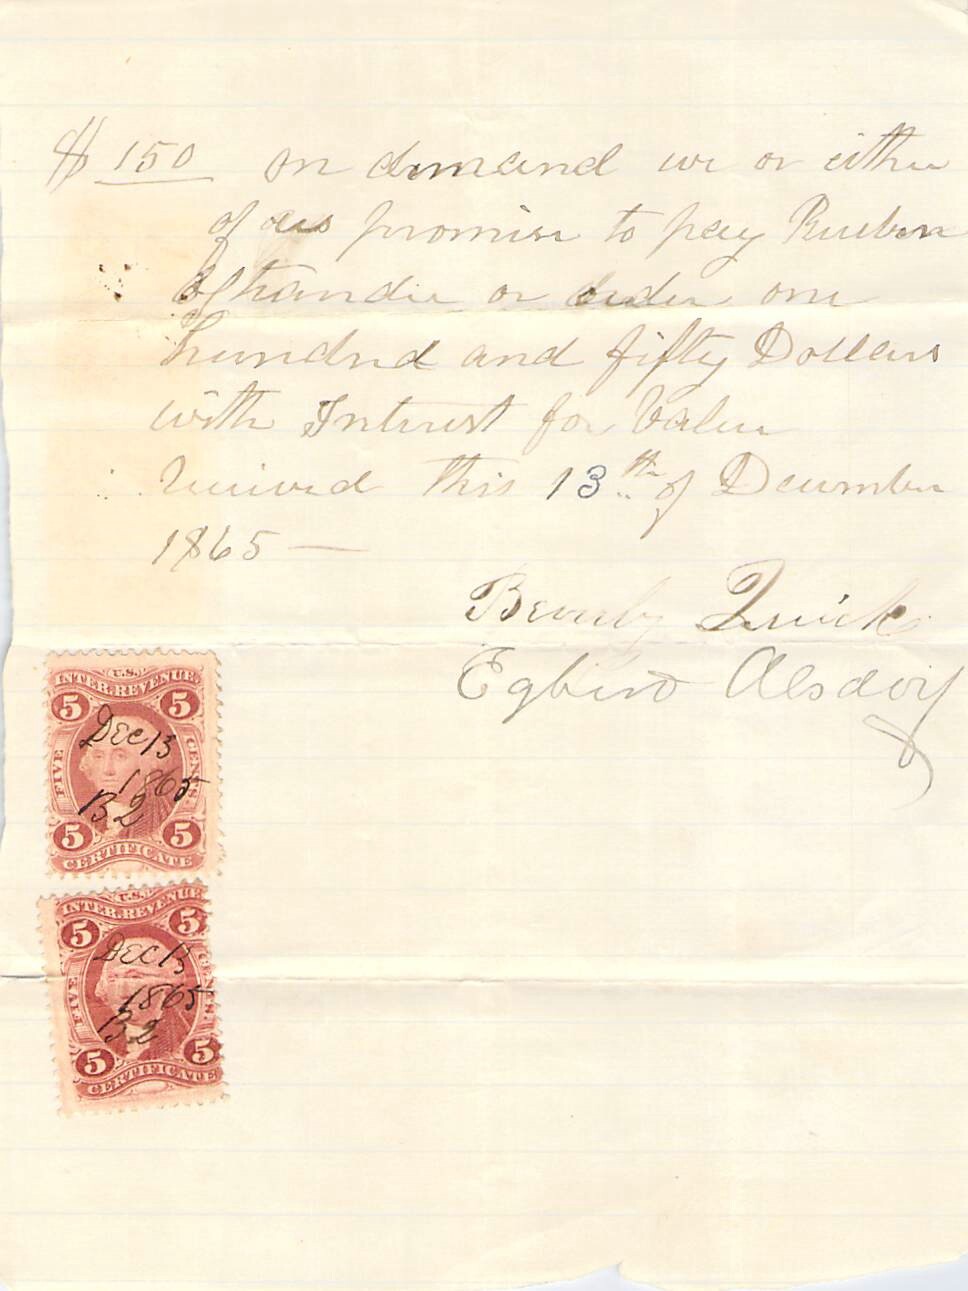 $ 150 on demand we or either
of us promise to pay Rueben
or order one
hundred and fifty Dollars
with Interest for Value
Received this 13th of December
1865 —
Beverly Quick
Egbert Alsdorf
U.S.
INTER. REVENUE
5 5
Dec 13
1865
B Q
FIVE CENTS.
5 5
CERTIFICATE
U.S.
INTER. REVENUE
5 5
DEC 13
1865
B Q
FIVE CENTS.
5 5
CERTIFICATE